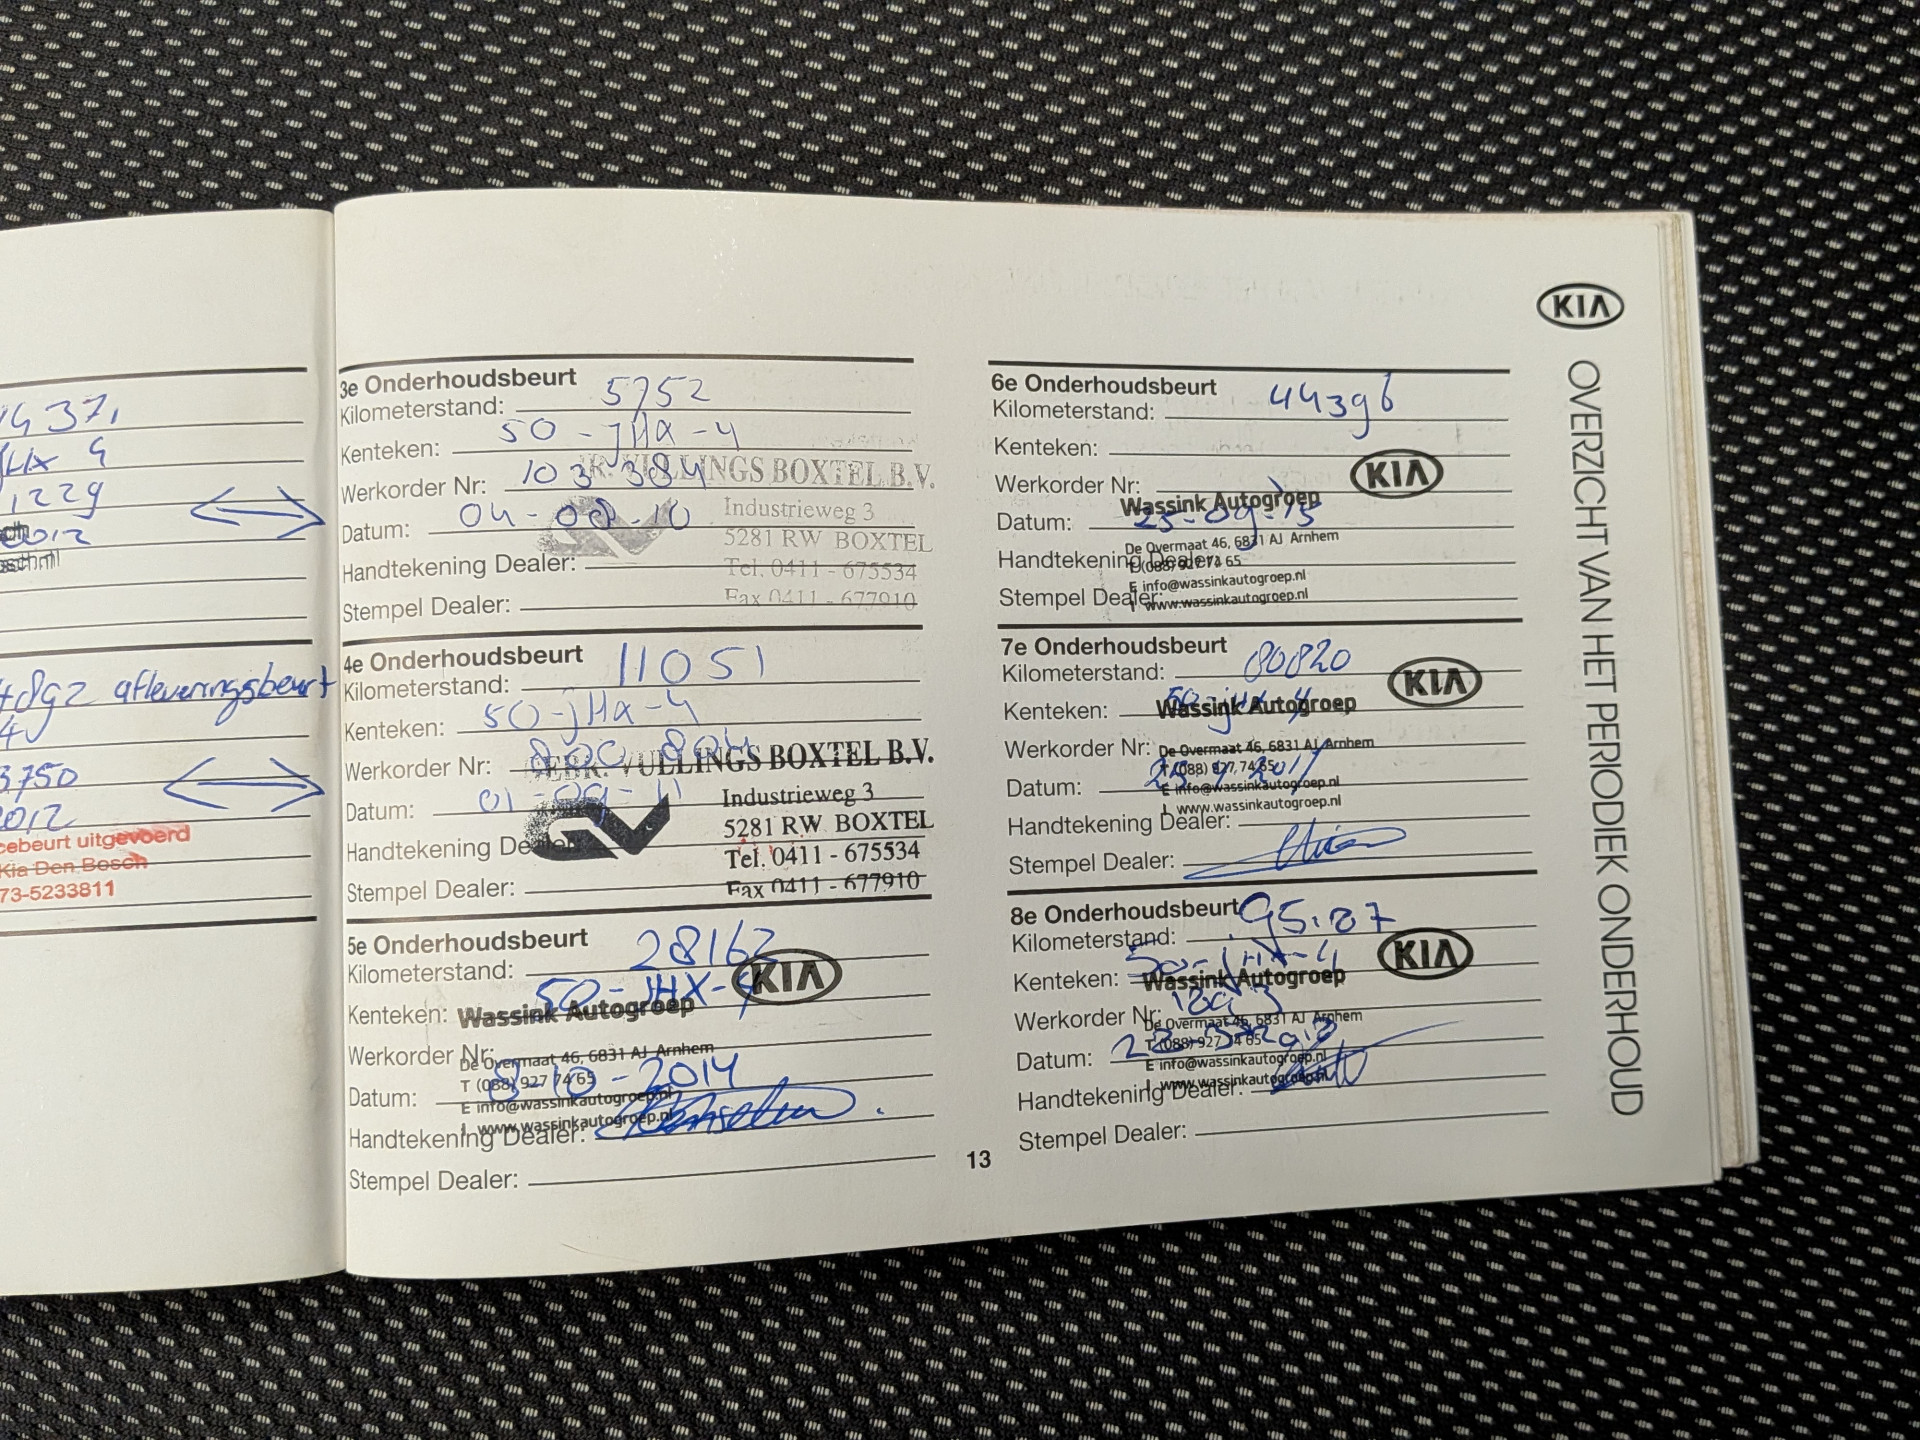 437,
Hx 4
1229
2012
afleveringsbeurt
3750
2012
cebeurt uitgevoerd
Kia Den Bosch
73-5233811
3e Onderhoudsbeurt
Kilometerstand: 5752
Kenteken: 50-JHX-4
Werkorder Nr: 103 384
VULLINGS BOXTEL B.V.
Datum: 04-08-10
Industrieweg 3
5281 RW BOXTEL
Handtekening Dealer:
Tel. 0411 - 675534
Stempel Dealer:
Fax 0411 - 677910
4e Onderhoudsbeurt
Kilometerstand: 11051
Kenteken: 50-JHX-4
Werkorder Nr:
GEBR. VULLINGS BOXTEL B.V.
Datum: 01-09-11
Industrieweg 3
5281 RW BOXTEL
Handtekening Dealer
Tel. 0411 - 675534
Stempel Dealer:
Fax 0411 - 677910
5e Onderhoudsbeurt
Kilometerstand: 28162
KIA
Kenteken: 50-JHX-4
Wassink Autogroep
Werkorder Nr:
De Overmaat 46, 6831 AJ Arnhem
T (088) 927 74 65
Datum: 8-10-2014
E info@wassinkautogroep.nl
I www.wassinkautogroep.nl
Handtekening Dealer:
Stempel Dealer:
6e Onderhoudsbeurt
Kilometerstand: 44396
Kenteken:
KIA
Werkorder Nr:
Wassink Autogroep
Datum: 25-09-15
De Overmaat 46, 6831 AJ Arnhem
Handtekening Dealer:
T (088) 927 74 65
E info@wassinkautogroep.nl
Stempel Dealer:
I www.wassinkautogroep.nl
7e Onderhoudsbeurt
Kilometerstand: 80820
KIA
Kenteken: 50-JHX-4
Wassink Autogroep
Werkorder Nr:
De Overmaat 46, 6831 AJ Arnhem
T (088) 927 74 65
Datum:
E info@wassinkautogroep.nl
I www.wassinkautogroep.nl
Handtekening Dealer:
Stempel Dealer:
8e Onderhoudsbeurt
Kilometerstand: 95.187
KIA
Kenteken: 50-JHX-4
Wassink Autogroep
Werkorder Nr:
De Overmaat 46, 6831 AJ Arnhem
T (088) 927 74 65
Datum:
E info@wassinkautogroep.nl
I www.wassinkautogroep.nl
Handtekening Dealer:
Stempel Dealer:
13
KIA
OVERZICHT VAN HET PERIODIEK ONDERHOUD